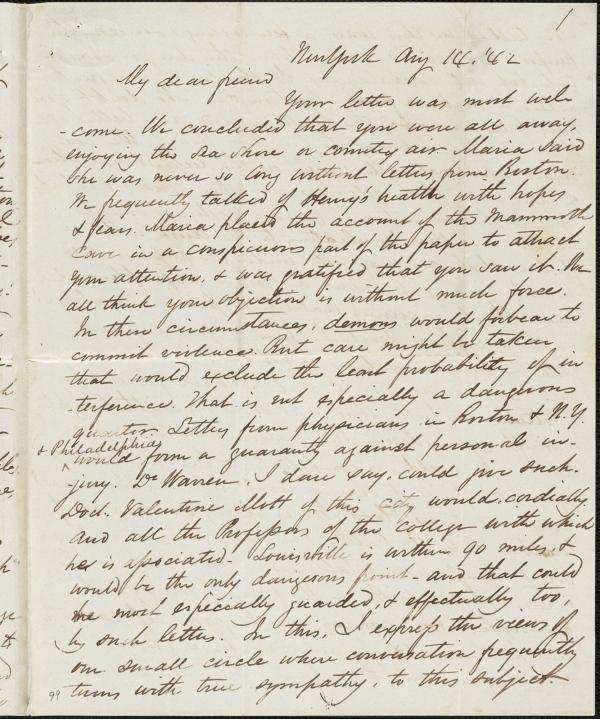 1
New York Aug 14. '42
My dear friend
Your letter was most wel-
-come. We concluded that you were all away,
enjoying the sea shore or country air. Maria said
she was never so long without letters from Boston.
We frequently talked of Henry's health with hopes
& fears. Maria placed the account of the Mammoth
Cave in a conspicuous part of the paper to attract
your attention, & was gratified that you saw it. We
all think your objection is without much force.
In these circumstances, demons would forbear to
commit violence. But care might be taken
that would exclude the least probability of in
-terference. That is not especially a dangerous
quarter. Letters from physicians in Boston & N.Y.
& Philadelphia
would form a guaranty against personal in-
-jury. Dr Warren, I dare say, could give such.
Doct. Valentine Mott of this city would, cordially
and all the Professors of the college with which
he is associated - Louisville is within 90 miles &
would be the only dangerous point - and that could
be most especially guarded, & effectually too,
by such letters. In this, I express the views of
our small circle where conversation frequently
turns with true sympathy, to this subject.
99